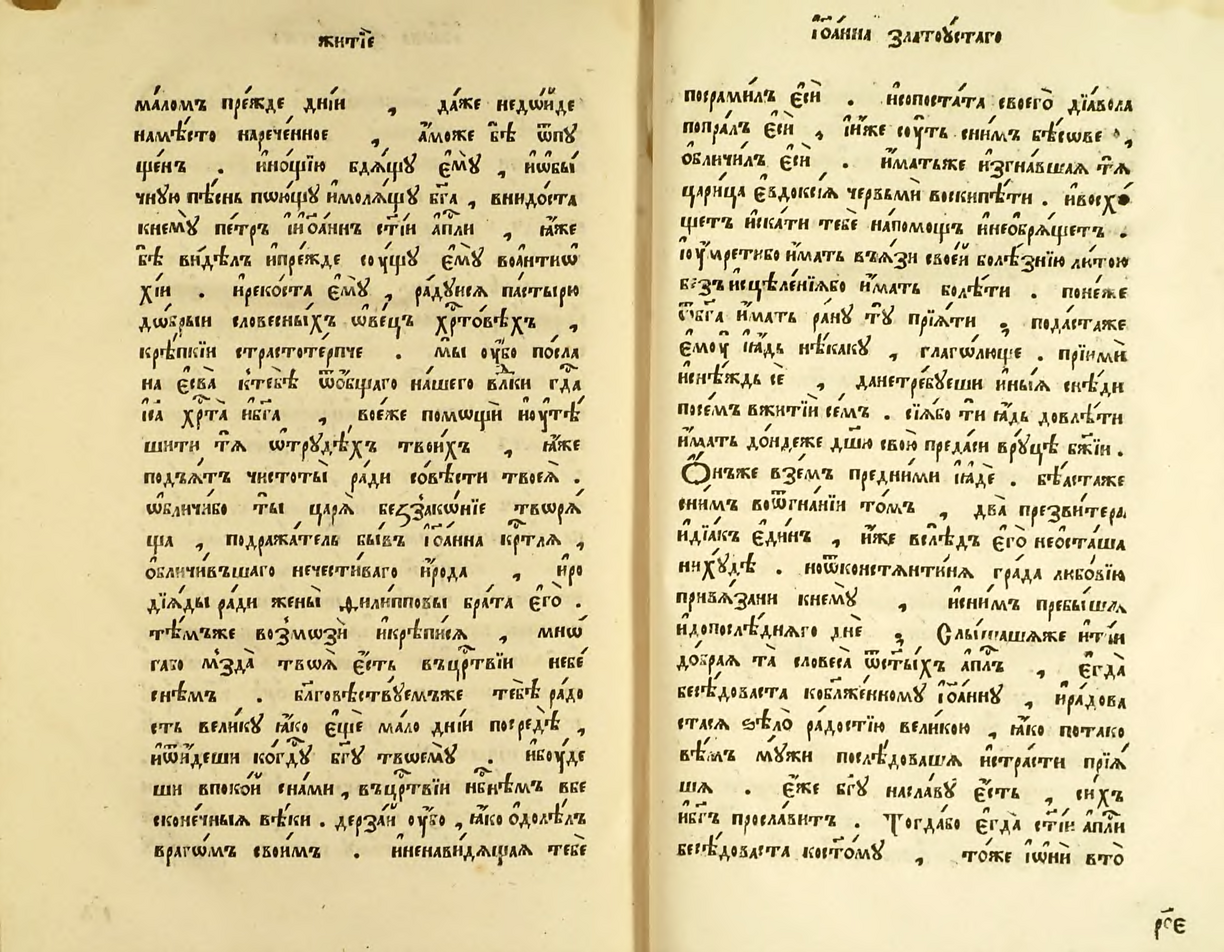 житїе
ма́ломъ пре́жде дні́и , да́же недѡ́йде
намѣ́сто нарече́нное , а҆́може бѣ̀ ѿпꙋ
ще́нъ . и҆но́щїю бдѧ́щꙋ є҆мꙋ̀ , и҆ѡбы́
чнꙋю пѣ́снь пою́щꙋ и҆молѧ́щꙋ бг҃а , внидо́ста
кнемꙋ̀ пе́тръ и҆їѡа́ннъ ст҃і́и а҆пⷭ҇ли , ꙗ҆́же
бѣ̀ ви́дѣлъ и҆пре́жде сѹ́щꙋ є҆мꙋ̀ воа҆нтиѡ
хі́и . и҆реко́ста є҆мꙋ̀ , ра́дꙋисѧ па́стырю
до́брыи слове́сныхъ ѡ҆ве́цъ хрⷭ҇то́вѣхъ ,
крѣ́пкїи страстоте́рпче . мы̀ ѹ҆́бо по́сла
на є҆свѣ̀ ктебѣ̀ ѿѻ҆́бщаго на́шего влⷣки гдⷭ҇а
і҆с҃а хрⷭ҇та̀ и҆бг҃а , во́еже помощѝ и҆ѹ҆тѣ́
шити тѧ̀ ѡ҆трꙋдѣ́хъ твои́хъ , ꙗ҆́же
под̾ѧ́тъ чистоты̀ ра́ди со́вѣсти твоеѧ̀ .
ѡ҆бличи́бо ты̀ царѧ̀ беззако́нїе творѧ́
ща , подража́тель бы́въ і҆ѡа́нна крⷭ҇тлѧ ,
ѻ҆бличи́въшаго нечести́ваго и҆́рода , и҆ро
дїѧ́ды ра́ди жены̀ фили́пповы бра́та є҆го̀ .
тѣ́мъже возмозѝ и҆крѣпи́сѧ , мно́
габо мзда̀ твоѧ̀ є҆́сть въцрⷭ҇твїи небе́
снѣмъ . бл҃говѣ́ствꙋемъже тебѣ̀ ра́до
сть вели́кꙋ ꙗ҆́ко є҆щѐ ма́ло дні́и посредѣ̀ ,
и҆ѿи́деши когдⷭ҇ꙋ бг҃ꙋ твоемꙋ̀ . и҆бꙋ́де
ши впоко́и сна́ми , въцрⷭ҇твїи нбⷭ҇нѣмъ вбе
сконе́чныѧ вѣ́ки . дерза́й ѹ҆́бо , ꙗ҆́ко ѻ҆долѣ́лъ
врагѡ́мъ свои́мъ . и҆ненави́дѧщаѧ тебѐ
і҆ѡа́нна златоꙋ́стаго
посрами́лъ є҆сѝ . и҆сопоста́та своего̀ дїа́вола
попра́лъ є҆сѝ , и҆и҆́же сѹ́ть сни́мъ бѣ́сове ,
ѻ҆бличи́лъ є҆сѝ . и҆́матьже и҆згна́вшаѧ тѧ̀
цари́ца є҆ѵдоксі́ѧ червьмѝ воскипѣ́ти . и҆восхо́
щетъ и҆ска́ти тебѐ напо́мощь и҆необрѧ́щетъ .
и҆ѹ҆́мретибо и҆́мать въѧ́зи свое́й болѣ́знїю лю́тою
безъисцѣле́нїѧбо и҆́мать болѣ́ти . поне́же
ѿбг҃а и҆́мать ра́нꙋ тꙋ̀ прїѧ́ти ; подаста́же
є҆мѹ̀ ꙗ҆́дь нѣ́какꙋ , глаго́люще . прїимѝ
и҆снѣ́ждь сѐ , данетре́бꙋеши и҆ны́ѧ снѣ́ди
посе́мъ вжитїѝ се́мъ . сїѧ́бо тѝ ꙗ҆́дь довлѣ́ти
и҆́мать до́ндеже дш҃ю свою̀ преда́си врꙋ́цѣ бж҃їи .
Ѻ҆́нъже взе́мъ преⷣни́ми ꙗ҆дѐ . бѣ́астаже
сни́мъ воѿгна́нїи то́мъ , два̀ презви́тера
и҆дїа́къ є҆ди́нъ , и҆́же вслѣ́дъ є҆го̀ неоста́ша
никꙋдѣ̀ . ноѿконстѧнти́нѧ гра́да любо́вїю
привѧ́зани кнемꙋ̀ , и҆сни́мъ пребы́ша
и҆допослѣ́днѧго днѐ ; Слы́шашаже и҆ті́и
до́браѧ та̀ словеса̀ ѿст҃ы́хъ а҆пⷭ҇лъ , є҆гда̀
бесѣ́доваста кобл҃же́нномꙋ і҆ѡа́ннꙋ , и҆ра́дова
стасѧ ѕѣлѡ̀ ра́достїю вели́кою , ꙗ҆́ко пота́ко
вѣмъ мꙋ́жи послѣ́доваша и҆стра́сти прїѧ́
ша . є҆́же бг҃ꙋ насла́вꙋ є҆́сть , си́хъ
и҆бг҃ъ просла́витъ . Тогда́бо є҆гда̀ ст҃і́и а҆пⷭ҇ли
бесѣ́доваста косто́мꙋ , то́же і҆ѡ́ни вто̀
рⷭ҇є